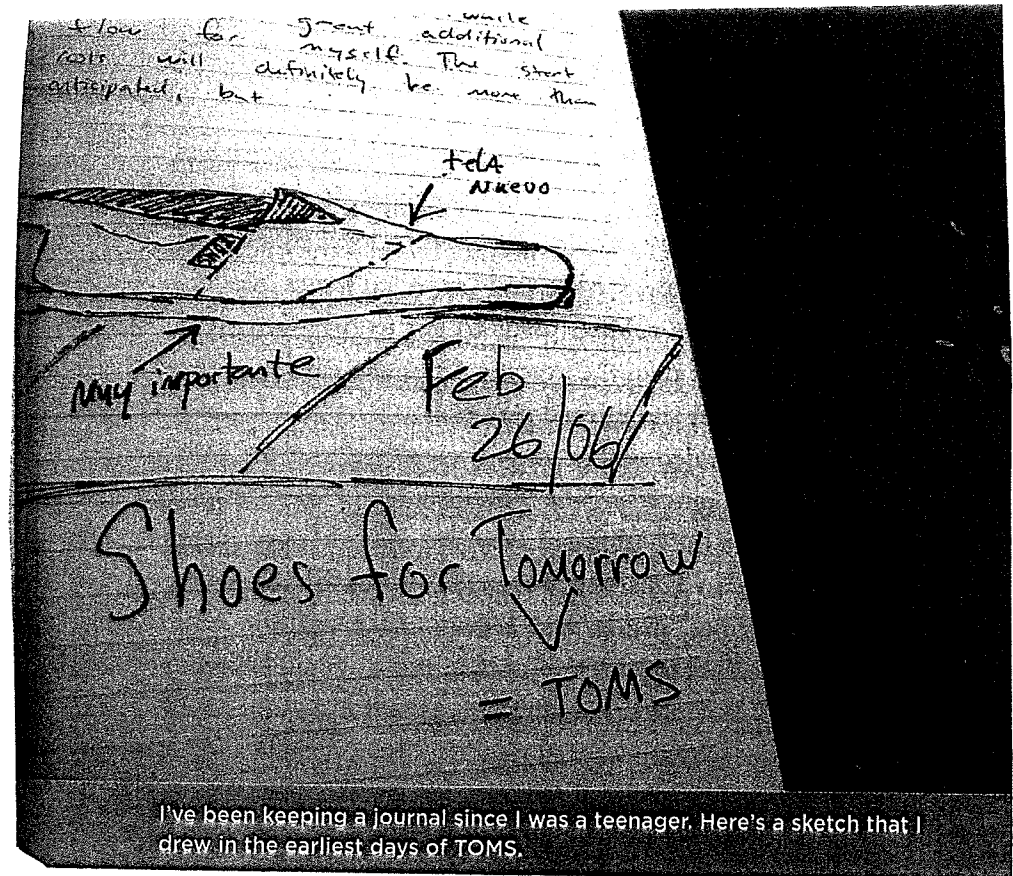 while
flow for grant additional
myself. The start
costs will definitely be more than
anticipated, but
telA
Nuevo
Muy importante
Feb
26/06
Shoes for Tomorrow
= TOMS
I've been keeping a journal since I was a teenager. Here's a sketch that I
drew in the earliest days of TOMS.